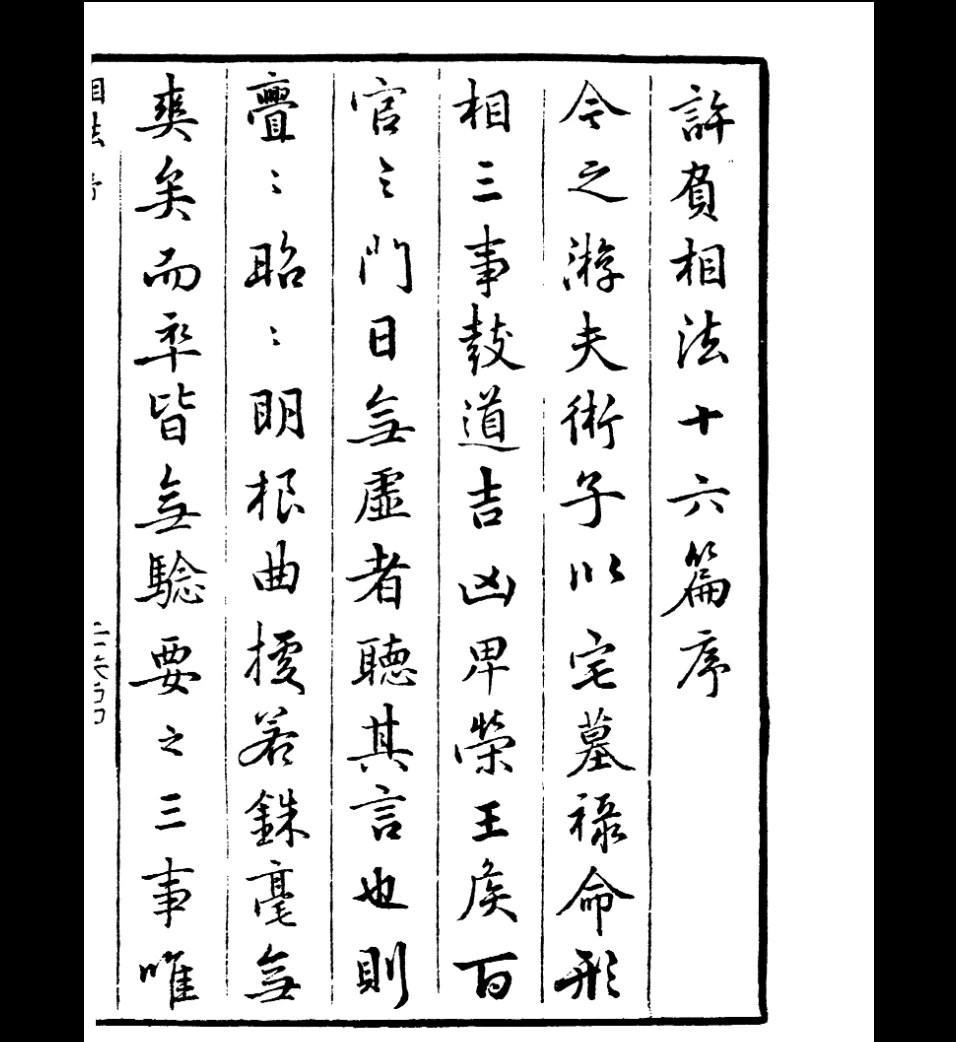 許負相法十六篇序
今之游夫術子以宅墓禄命形
相三事鼓道吉凶卑榮王侯百
官之門日無虛者聽其言也則
亹〻昭〻明根曲據若銖毫無
爽矣而率皆無驗要之三事唯